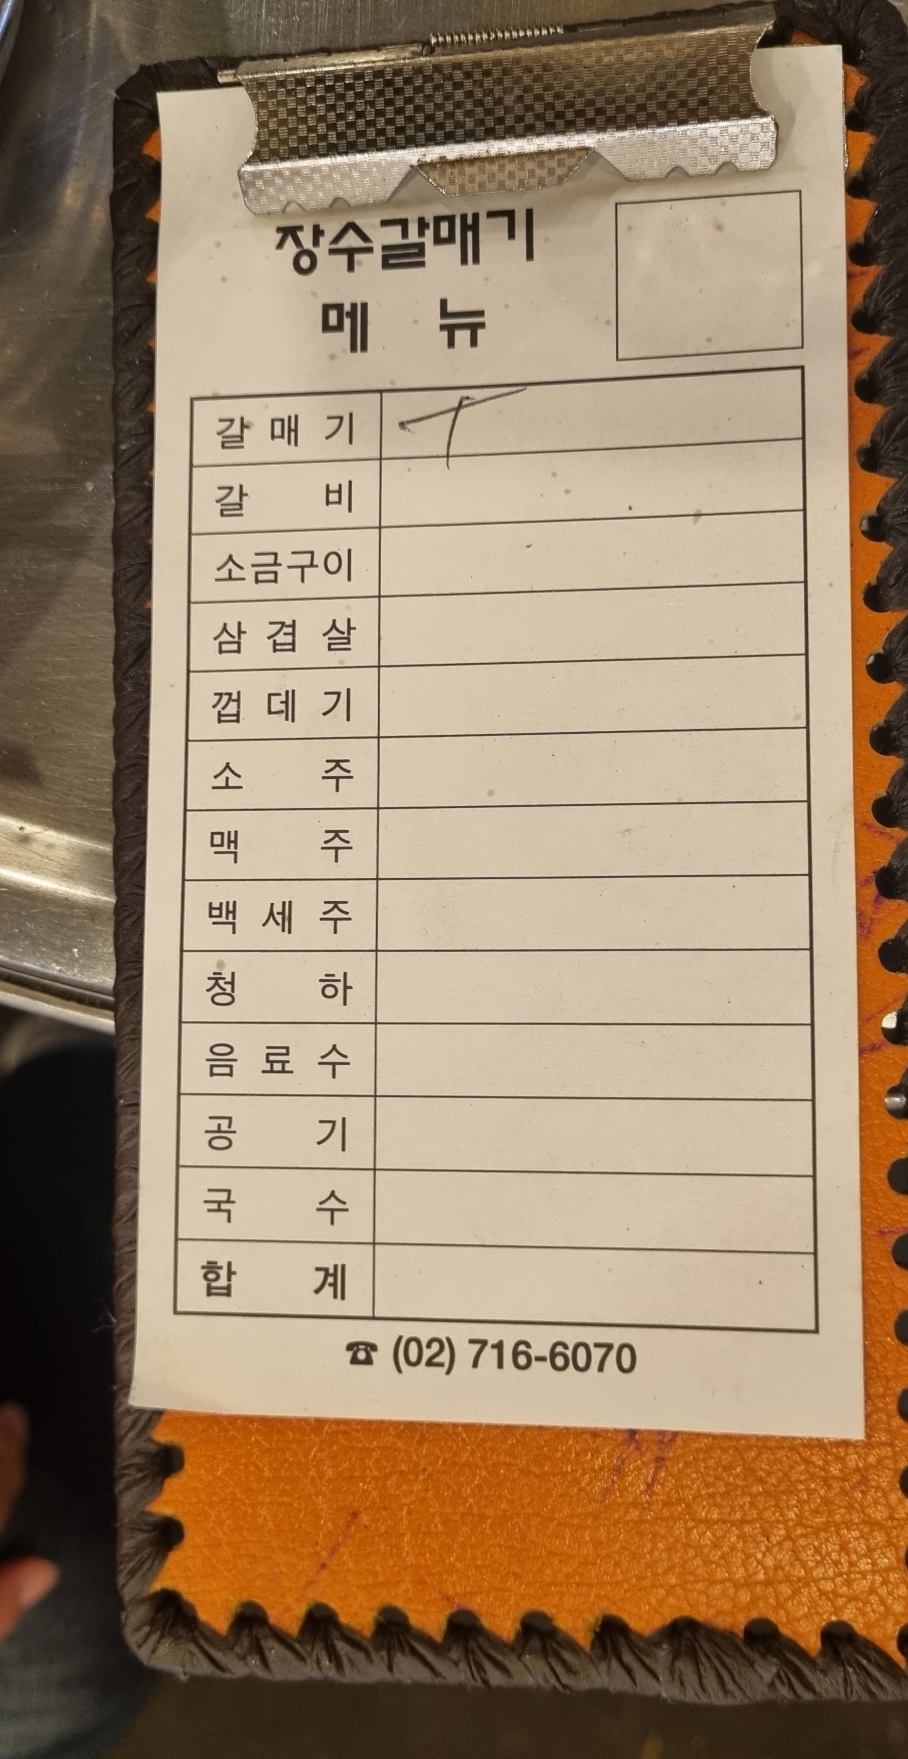 장수갈매기
메 뉴
갈 매 기
갈 비
소금구이
삼 겹 살
껍 데 기
소 주
맥 주
백 세 주
청 하
음 료 수
공 기
국 수
합 계
☎ (02) 716-6070